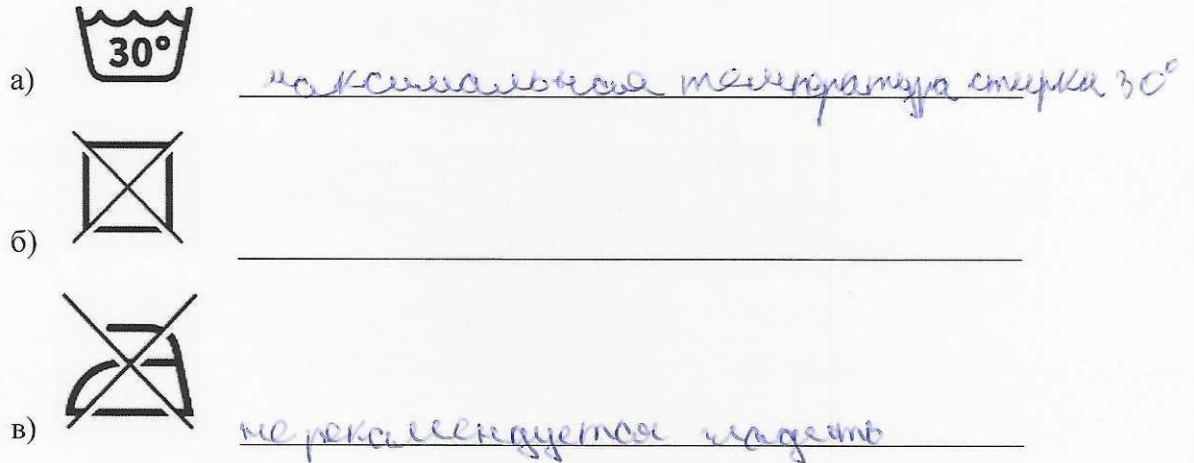 30°
а) максимальная температура стирки 30°
б)
в) не рекамендуется гладить